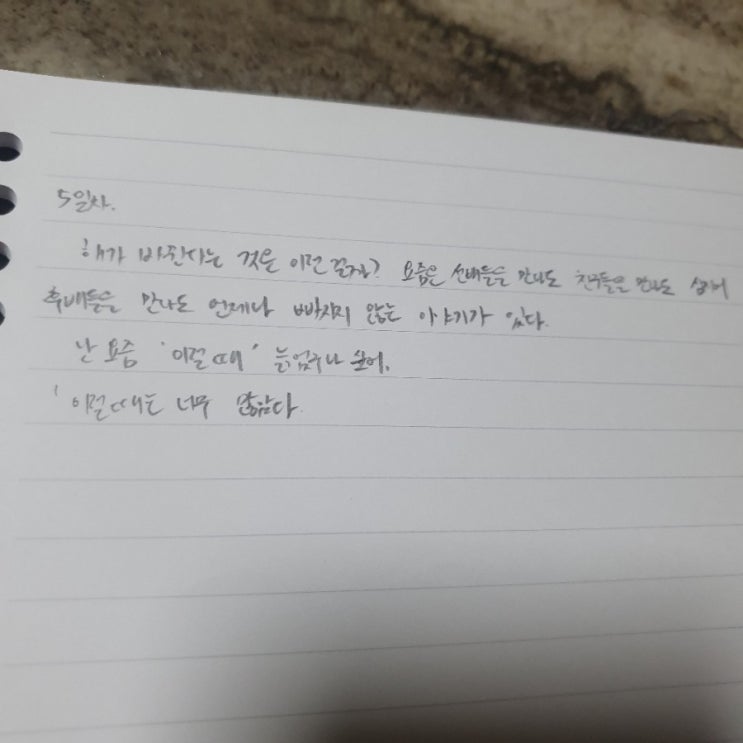 5일차.
해가 바뀐다는 것은 이런 걸까? 요즘은 선배들을 만나도 친구들을 만나도 심지어
후배들을 만나도 언제나 빠지지 않는 이야기가 있다.
난 요즘 '이럴때' 늙었구나 싶어.
'이럴때는 너무 많았다.